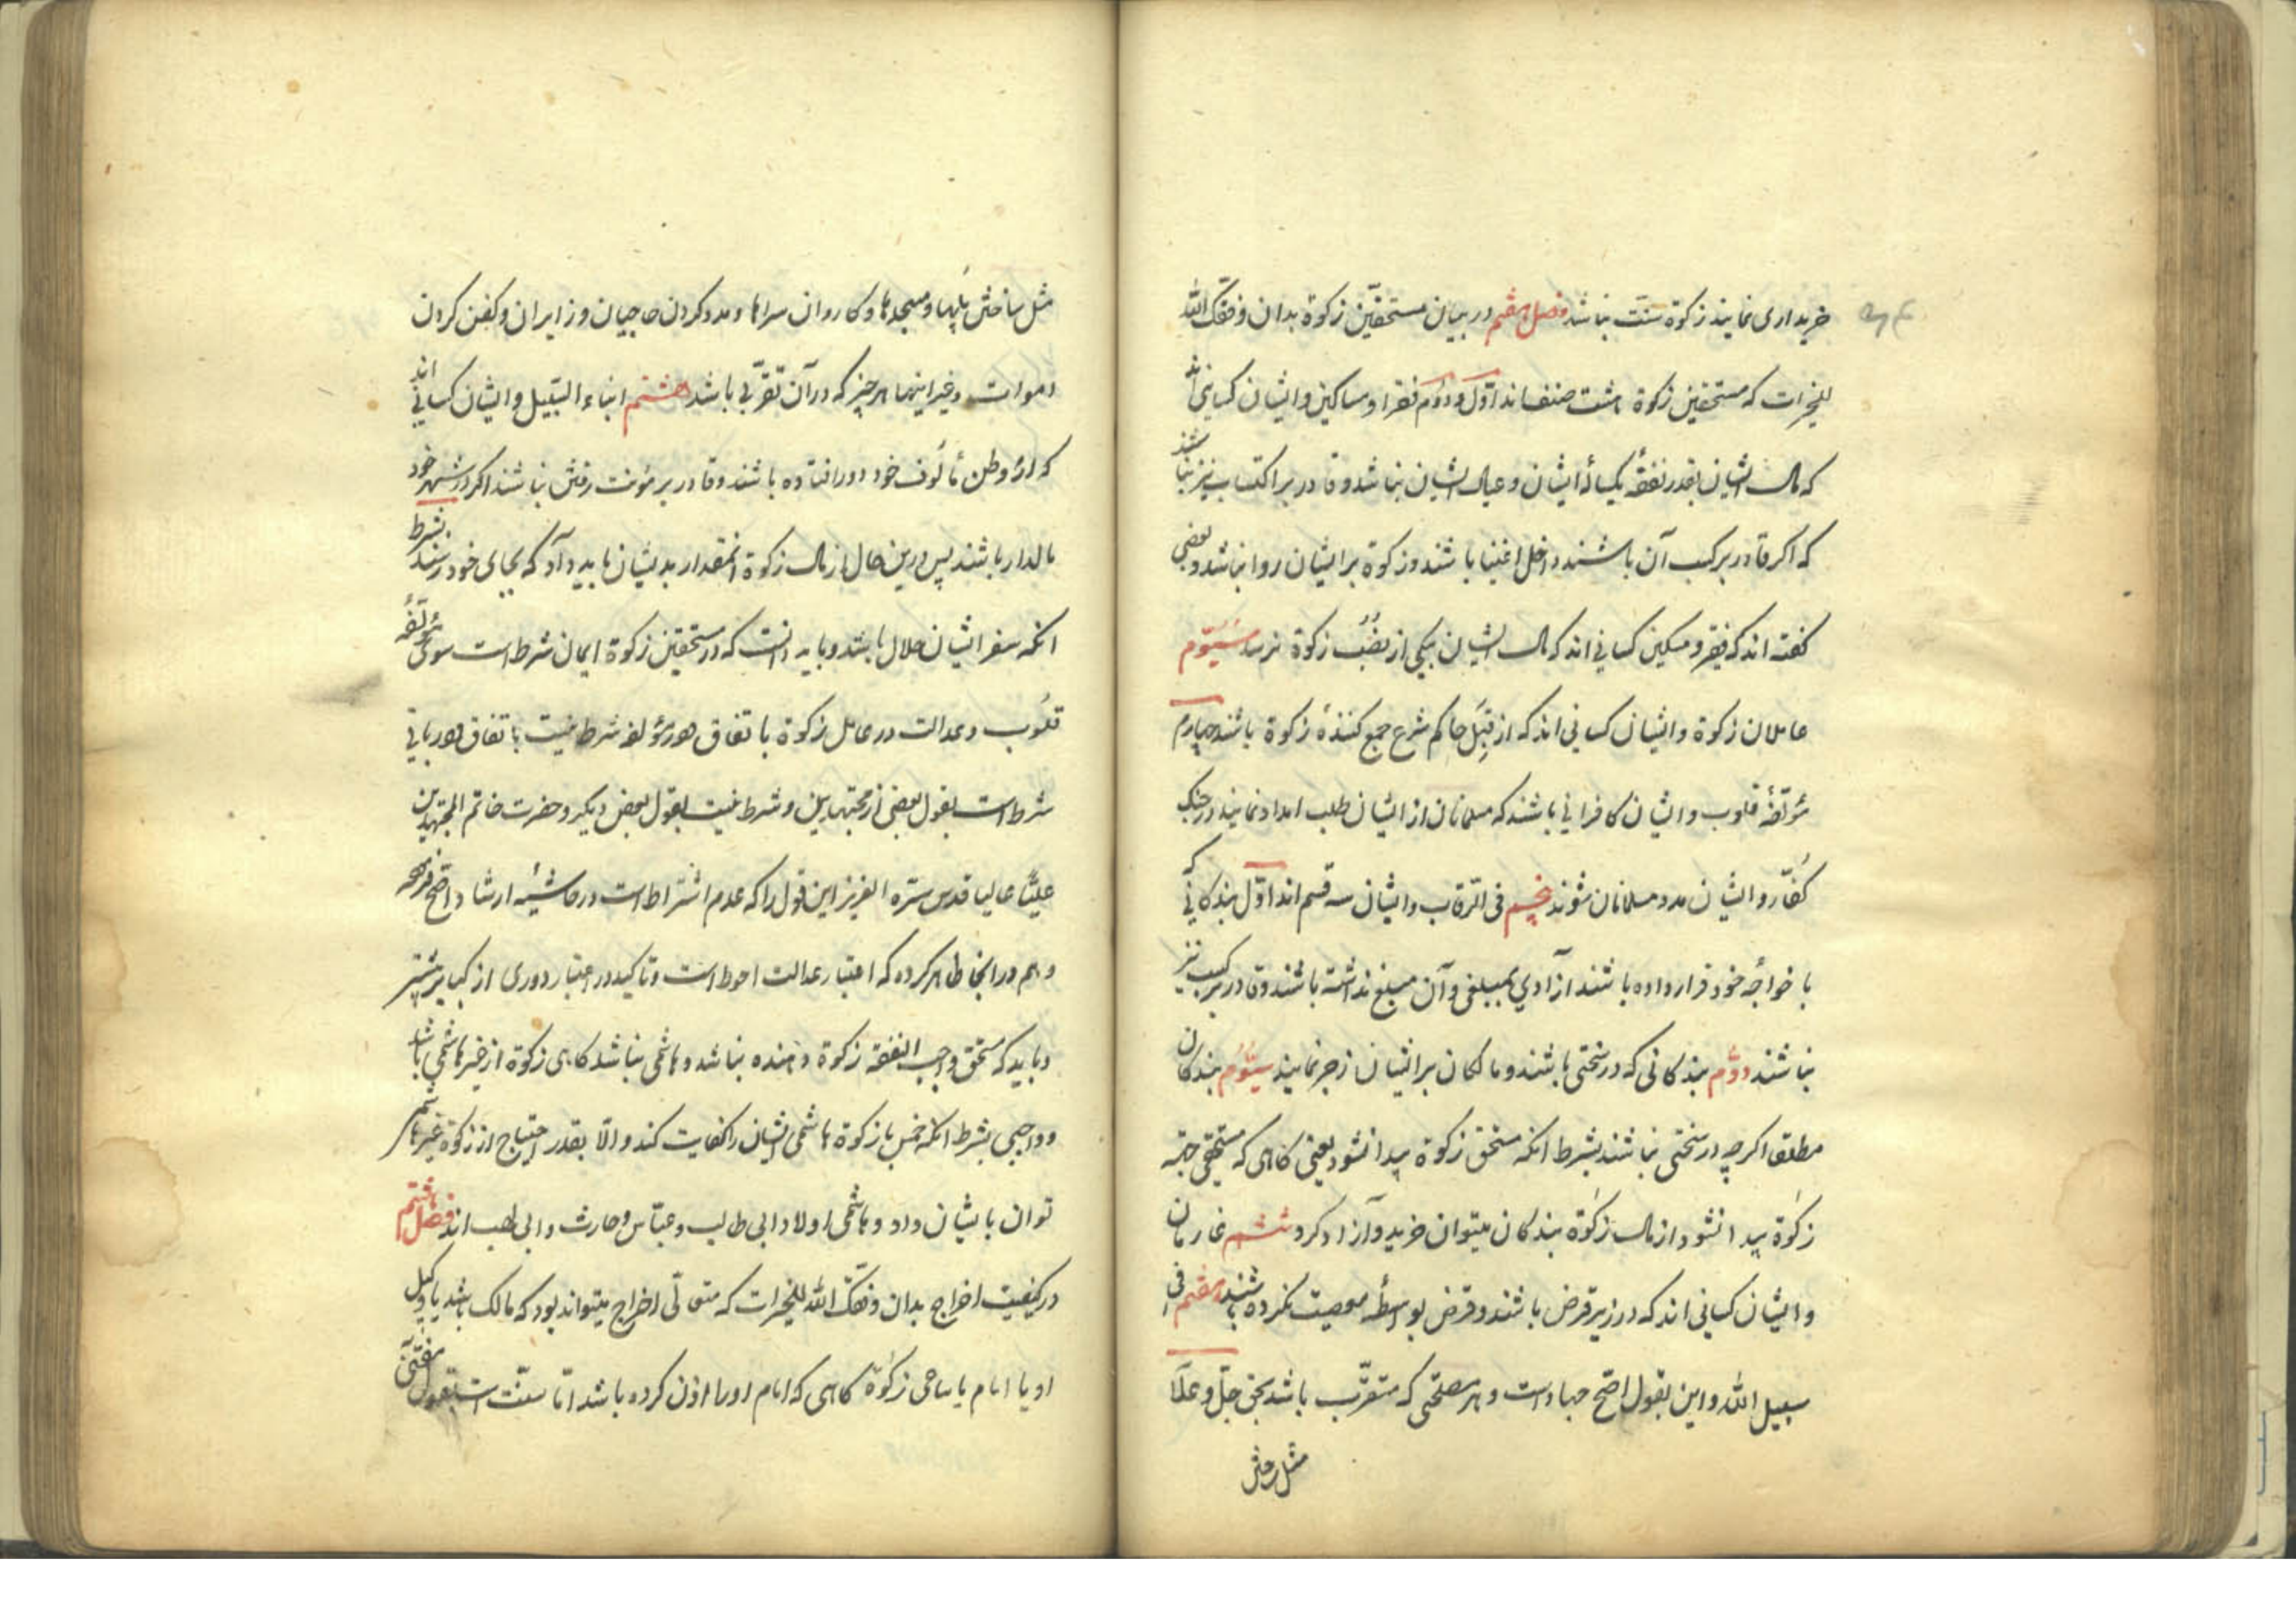 خریداری نمایند زکوة سنت نباشد فصل هفتم در بیان مستحقین زکوة بدان وفقک الله
للخیرات که مستحقین زکوة هشت صنف اند اول و دوم فقرا و مساکین و ایشان کسانی اند
که مال ایشان بقدر نفقهٔ یکسالهٔ ایشان و عیال ایشان نباشد و قادر بر اکتساب نیز نباشند
که اگر قادر بر کسب آن باشند داخل اغنیا باشند و زکوة بر ایشان روا نباشد و بعضی
گفته اند که فقیر و مسکین کسانی اند که مال ایشان بیکی از نصب زکوة نرسد سیوم
عاملان زکوة و ایشان کسانی اند که از قبل حاکم شرع جمع کنندهٔ زکوة باشند چهارم
مؤلفهٔ قلوب و ایشان کافرانی باشند که مسلمانان از ایشان طلب امداد نمایند در جنک
کفار و ایشان مدد مسلمانان شوند پنجم فی الرقاب و ایشان سه قسم اند اول بندکانی که
با خواجهٔ خود قرار داده باشند آزادی بمبلغی و آن مبلغ نداشته باشند و قادر بر کسب نیز
نباشند دوم بندکانی که در سختی باشند و مالکان بر ایشان زجر نمایند سیوم بندکان
مطلق اکرچه در سختی نباشند بشرط انکه مستحق زکوة پیدا نشود یعنی کاهی که مستحقی جهة
زکوة پیدا نشود از مال زکوة بندکان میتوان خرید و آزاد کرد ششم غارمان
و ایشان کسانی اند که در زیر قرض باشند و قرض بواسطهٔ معصیت نکرده باشند هفتم فی
سبیل الله و این بقول اصح جهاد است و هر مصلحتی که متقرب باشد بحق جل و علا
مثل ساختن
مثل ساختن پلها و مسجدها و کاروان سراها و مدد کردن حاجیان و زایران و کفن کردن
اموات و غیر اینها هر چیز که در آن تقربی باشد هشتم ابناء السبیل و ایشان کسانی اند
که از وطن مألوف خود دور افتاده باشند و قادر بر مؤنت رفتن نباشند اکر در شهر خود
مالدار باشند پس درین حال از مال زکوة انمقدار بدیشان باید داد که بجای خود رسند بشرط
انکه سفر ایشان حلال باشد و باید دانست که در مستحقین زکوة ایمان شرط است سوی مؤلفهٔ
قلوب و عدالت در عامل زکوة باتفاق و در مؤلفه شرط نیست باتفاق و در باقی
شرط است بقول بعضی از مجتهدین و شرط نیست بقول بعض دیکر و حضرت خاتم المجتهدین
علیا عالیا قدس سره العزیز این قول را که عدم اشتراط است در حاشیهٔ ارشاد اصح فرموده
و هم در انجا ظاهر کرده که اعتبار عدالت احوط است و تاکید در اعتبار دوری از کبایر بیشتر
و باید که مستحق واجب النفقه زکوة دهنده نباشد و هاشمی نباشد کاهی زکوة از غیر هاشمی باشد
و واجبی بشرط انکه خمس یا زکوة هاشمی ایشان را کفایت کند و الا بقدر احتیاج از زکوة غیر هاشمی
توان بایشان داد و هاشمی اولاد ابی طالب و عباس و حارث و ابی لهب اند فصل هشتم
در کیفیت اخراج بدان وفقک الله للخیرات که متولی اخراج میتواند بود که مالک باشد یا وکیل
او یا امام یا ساعی زکوة کاهی که امام او را اذن کرده باشد اما سنت است بقول